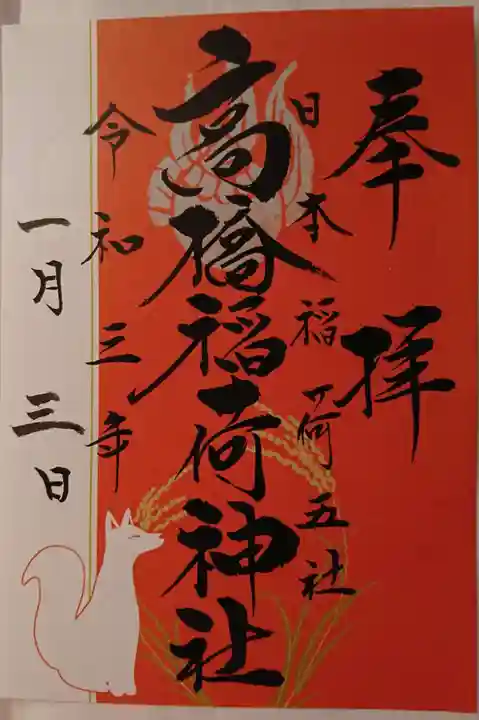 奉拝
日本稲荷五社
高橋稲荷神社
令和三年
一月三日